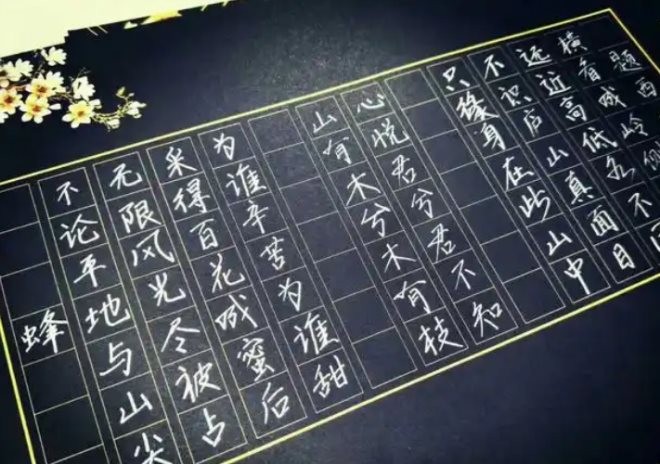 蜂
不论平地与山尖
无限风光尽被占
采得百花成蜜后
为谁辛苦为谁甜
山有木兮木有枝
心悦君兮君不知
题西
横看成岭侧
远近高低各不同
不识庐山真面目
只缘身在此山中